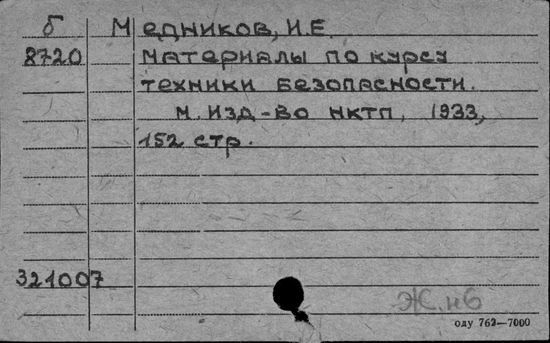 б Медников, И.Е.
8720 Материалы по курсу
техники безопасности.
М. Изд-во НКТП, 1933,
152 стр.
321007
Ж.н6
ОДУ 762—7000